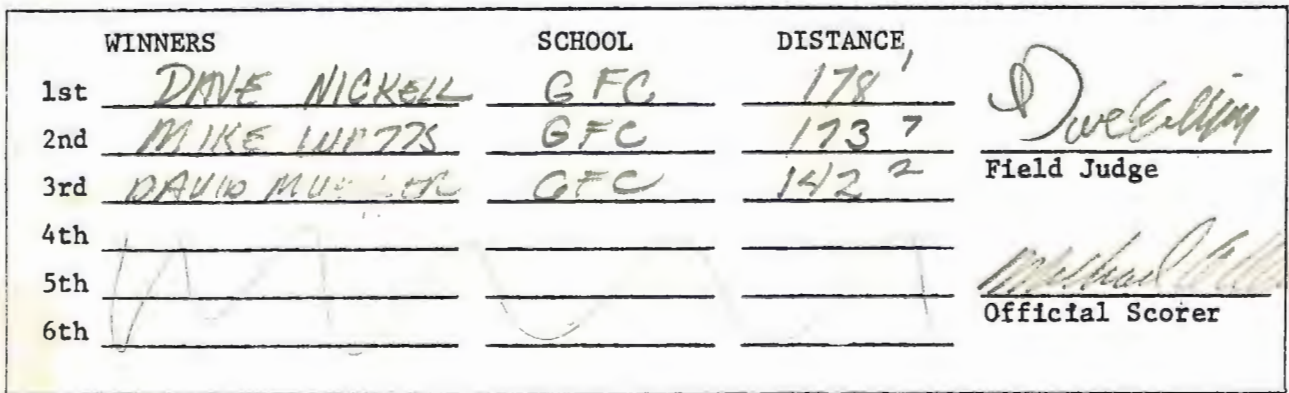 WINNERS SCHOOL DISTANCE
1st DAVE NICKELL GFC 178 1
2nd MIKE GFC 173 7
3rd DAVID GFC 142 2
4th
5th
6th
Dave
Field Judge
Michael
Official Scorer